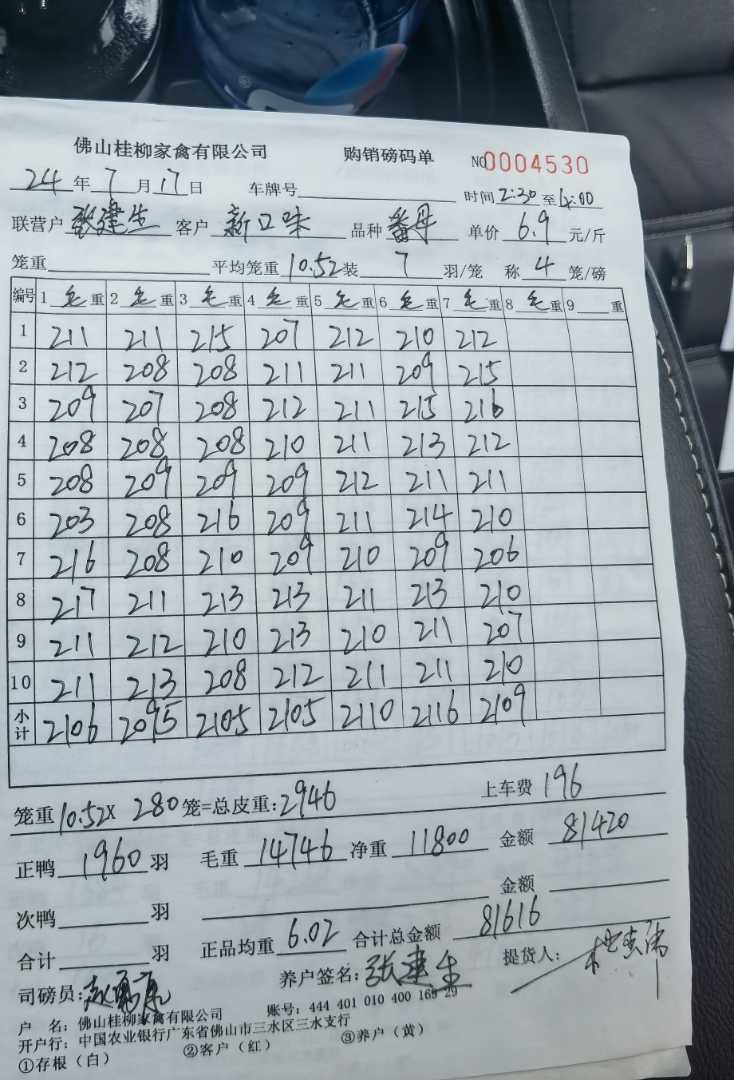 佛山桂柳家禽有限公司 购销磅码单 NO0004530
24年7月17日 车牌号 时间2:30至6:00
联营户张建生 客户新口味 品种番母 单价6.9元/斤
笼重 平均笼重10.52装7羽/笼 称4笼/磅
编号 1毛重 2毛重 3毛重 4毛重 5毛重 6毛重 7毛重 8毛重 9重
1 211 211 215 207 212 210 212
2 212 208 208 211 211 209 215
3 209 207 208 212 211 215 216
4 208 208 208 210 211 213 212
5 208 209 209 209 212 211 211
6 203 208 216 209 211 214 210
7 216 208 210 209 210 209 206
8 217 211 213 213 211 213 210
9 211 212 210 213 210 211 207
10 211 213 208 212 211 211 210
小计 2106 2095 2105 2105 2110 2116 2109
笼重10.52X 280笼=总皮重:2946 上车费196
正鸭1960羽 毛重14746 净重11800 金额81420
次鸭羽 金额
合计羽 正品均重6.02 合计总金额81616 提货人:
司磅员: 养户签名:张建生
户 名:佛山桂柳家禽有限公司 账号:444 401 010 400 165 29
开户行:中国农业银行广东省佛山市三水区三水支行
①存根(白) ②客户(红) ③养户(黄)